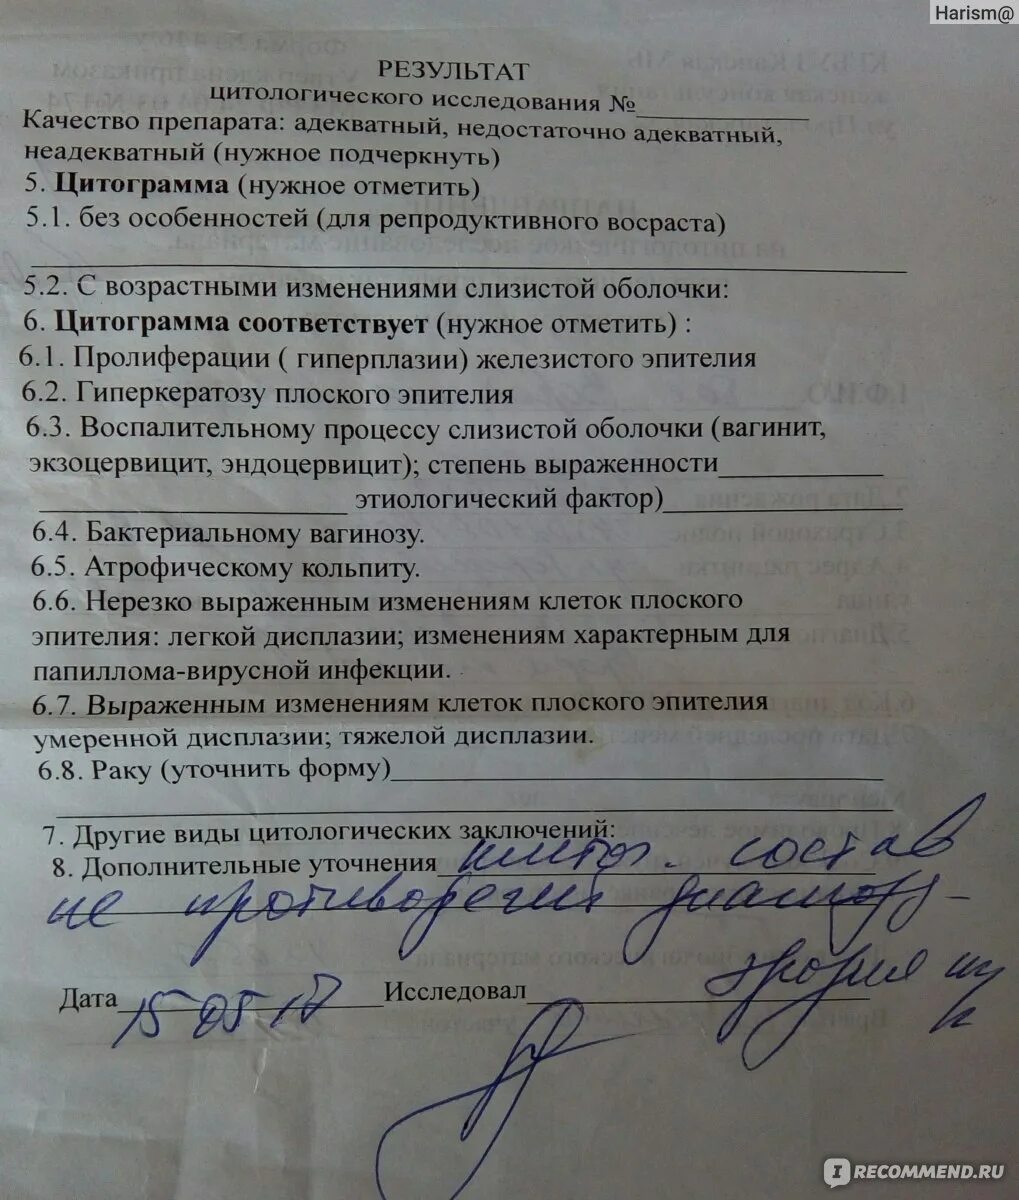 Harism@
РЕЗУЛЬТАТ
цитологического исследования №
Качество препарата: адекватный, недостаточно адекватный,
неадекватный (нужное подчеркнуть)
5. Цитограмма (нужное отметить)
5.1. без особенностей (для репродуктивного возраста)
5.2. С возрастными изменениями слизистой оболочки:
6. Цитограмма соответствует (нужное отметить) :
6.1. Пролиферации ( гиперплазии) железистого эпителия
6.2. Гиперкератозу плоского эпителия
6.3. Воспалительному процессу слизистой оболочки (вагинит,
экзоцервицит, эндоцервицит); степень выраженности
этиологический фактор)
6.4. Бактериальному вагинозу.
6.5. Атрофическому кольпиту.
6.6. Нерезко выраженным изменениям клеток плоского
эпителия: легкой дисплазии; изменениям характерным для
папиллома-вирусной инфекции.
6.7. Выраженным изменениям клеток плоского эпителия
умеренной дисплазии; тяжелой дисплазии.
6.8. Раку (уточнить форму)
7. Другие виды цитологических заключений:
8. Дополнительные уточнения клеточ. состав
не противоречит диагнозу -
эрозия ш/
к
Дата 15 05 17 Исследовал
RECOMMEND.RU